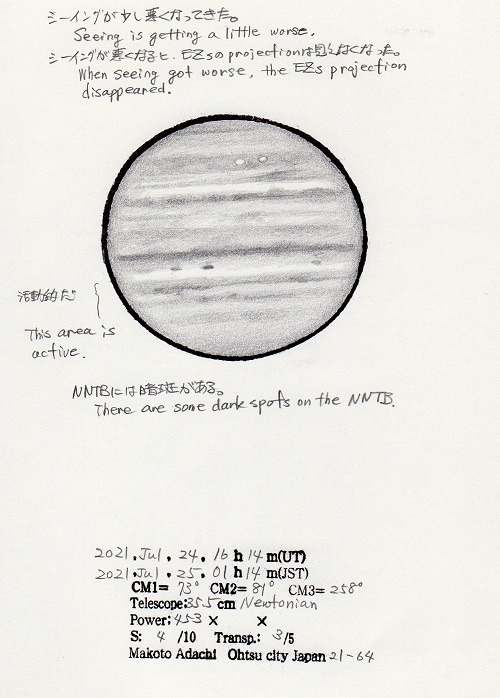 シーイングが少し悪くなってきた。
Seeing is getting a little worse.
シーイングが悪くなると、EZsのprojectionは見えなくなった。
When seeing got worse, the EZs projection
disappeared.
活動的だ
This area is
active.
NNTBには暗斑がある。
There are some dark spots on the NNTB.
2021. Jul. 24. 16 h 14 m(UT)
2021. Jul. 25. 01 h 14 m(JST)
CM1= 73° CM2= 81° CM3= 258°
Telescope:355 cm Newtonian
Power: 453 × ×
S: 4 /10 Transp.: 3/5
Makoto Adachi Ohtsu city Japan 21-64